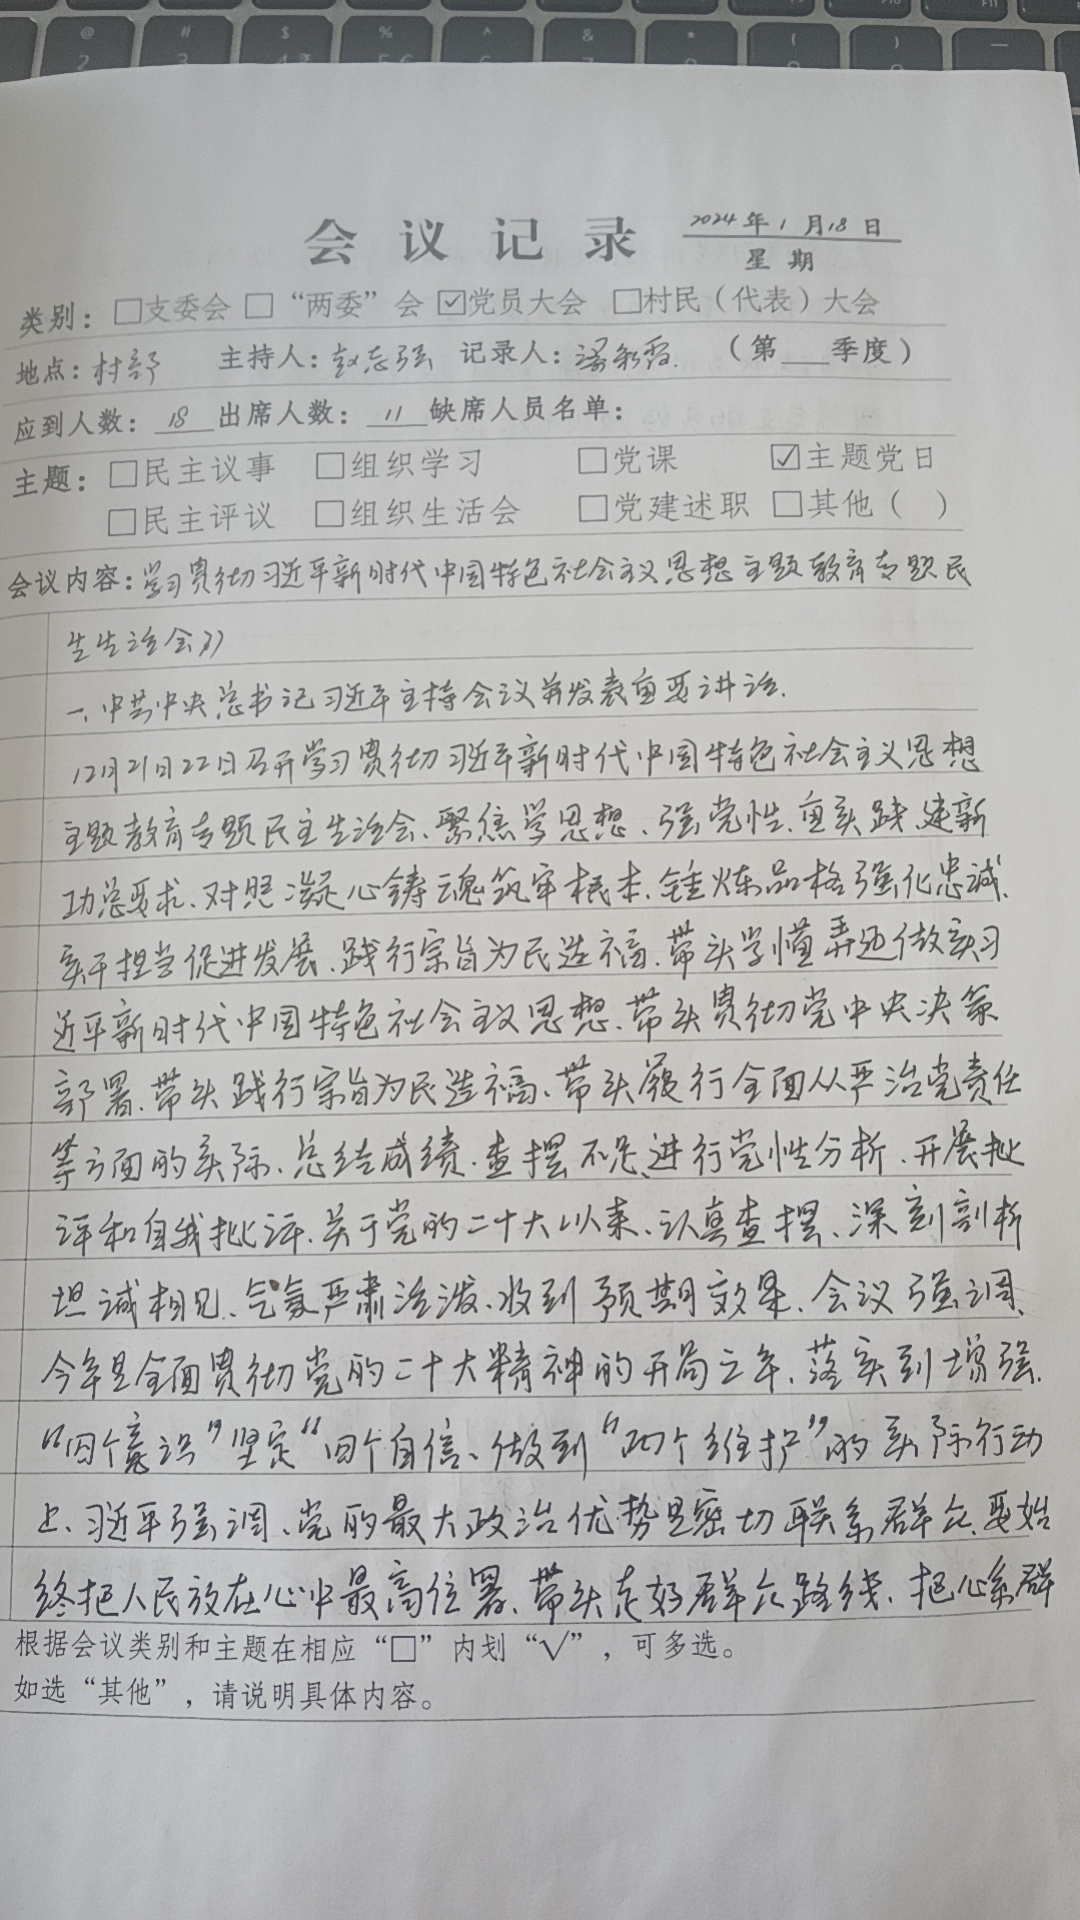 @ # $ % ^ & * ( ) —
2 3 4 5 € 6 7 8 9 0
会议记录 2024年1月18日
星期
类别：□支委会 □“两委”会 ☑党员大会 □村民（代表）大会
地点：村部 主持人：赵志强 记录人：梁彩霞. （第___季度）
应到人数：18 出席人数：11 缺席人员名单：
主题：□民主议事 □组织学习 □党课 ☑主题党日
□民主评议 □组织生活会 □党建述职 □其他（ ）
会议内容：学习贯彻习近平新时代中国特色社会主义思想主题教育专题民
生生活会》
一、中共中央总书记习近平主持会议并发表重要讲话.
12月21日22日召开学习贯彻习近平新时代中国特色社会主义思想
主题教育专题民主生活会、聚焦学思想、强党性、重实践、建新
功总要求、对照凝心铸魂筑牢根本、锤炼品格强化忠诚、
实干担当促进发展、践行宗旨为民造福、带头学懂弄通做实习
近平新时代中国特色社会主义思想、带头贯彻党中央决策
部署、带头践行宗旨为民造福、带头履行全面从严治党责任
等方面的实际、总结成绩、查摆不足、进行党性分析、开展批
评和自我批评、关于党的二十大以来、认真查摆、深刻剖析
坦诚相见、气氛严肃活泼、收到预期效果、会议强调、
今年是全面贯彻党的二十大精神的开局之年、落实到增强
“四个意识”坚定“四个自信、做到“两个维护”的实际行动
上、习近平强调、党的最大政治优势是密切联系群众、要始
终把人民放在心中最高位置、带头走好群众路线、把心系群
根据会议类别和主题在相应“□”内划“√”，可多选。
如选“其他”，请说明具体内容。